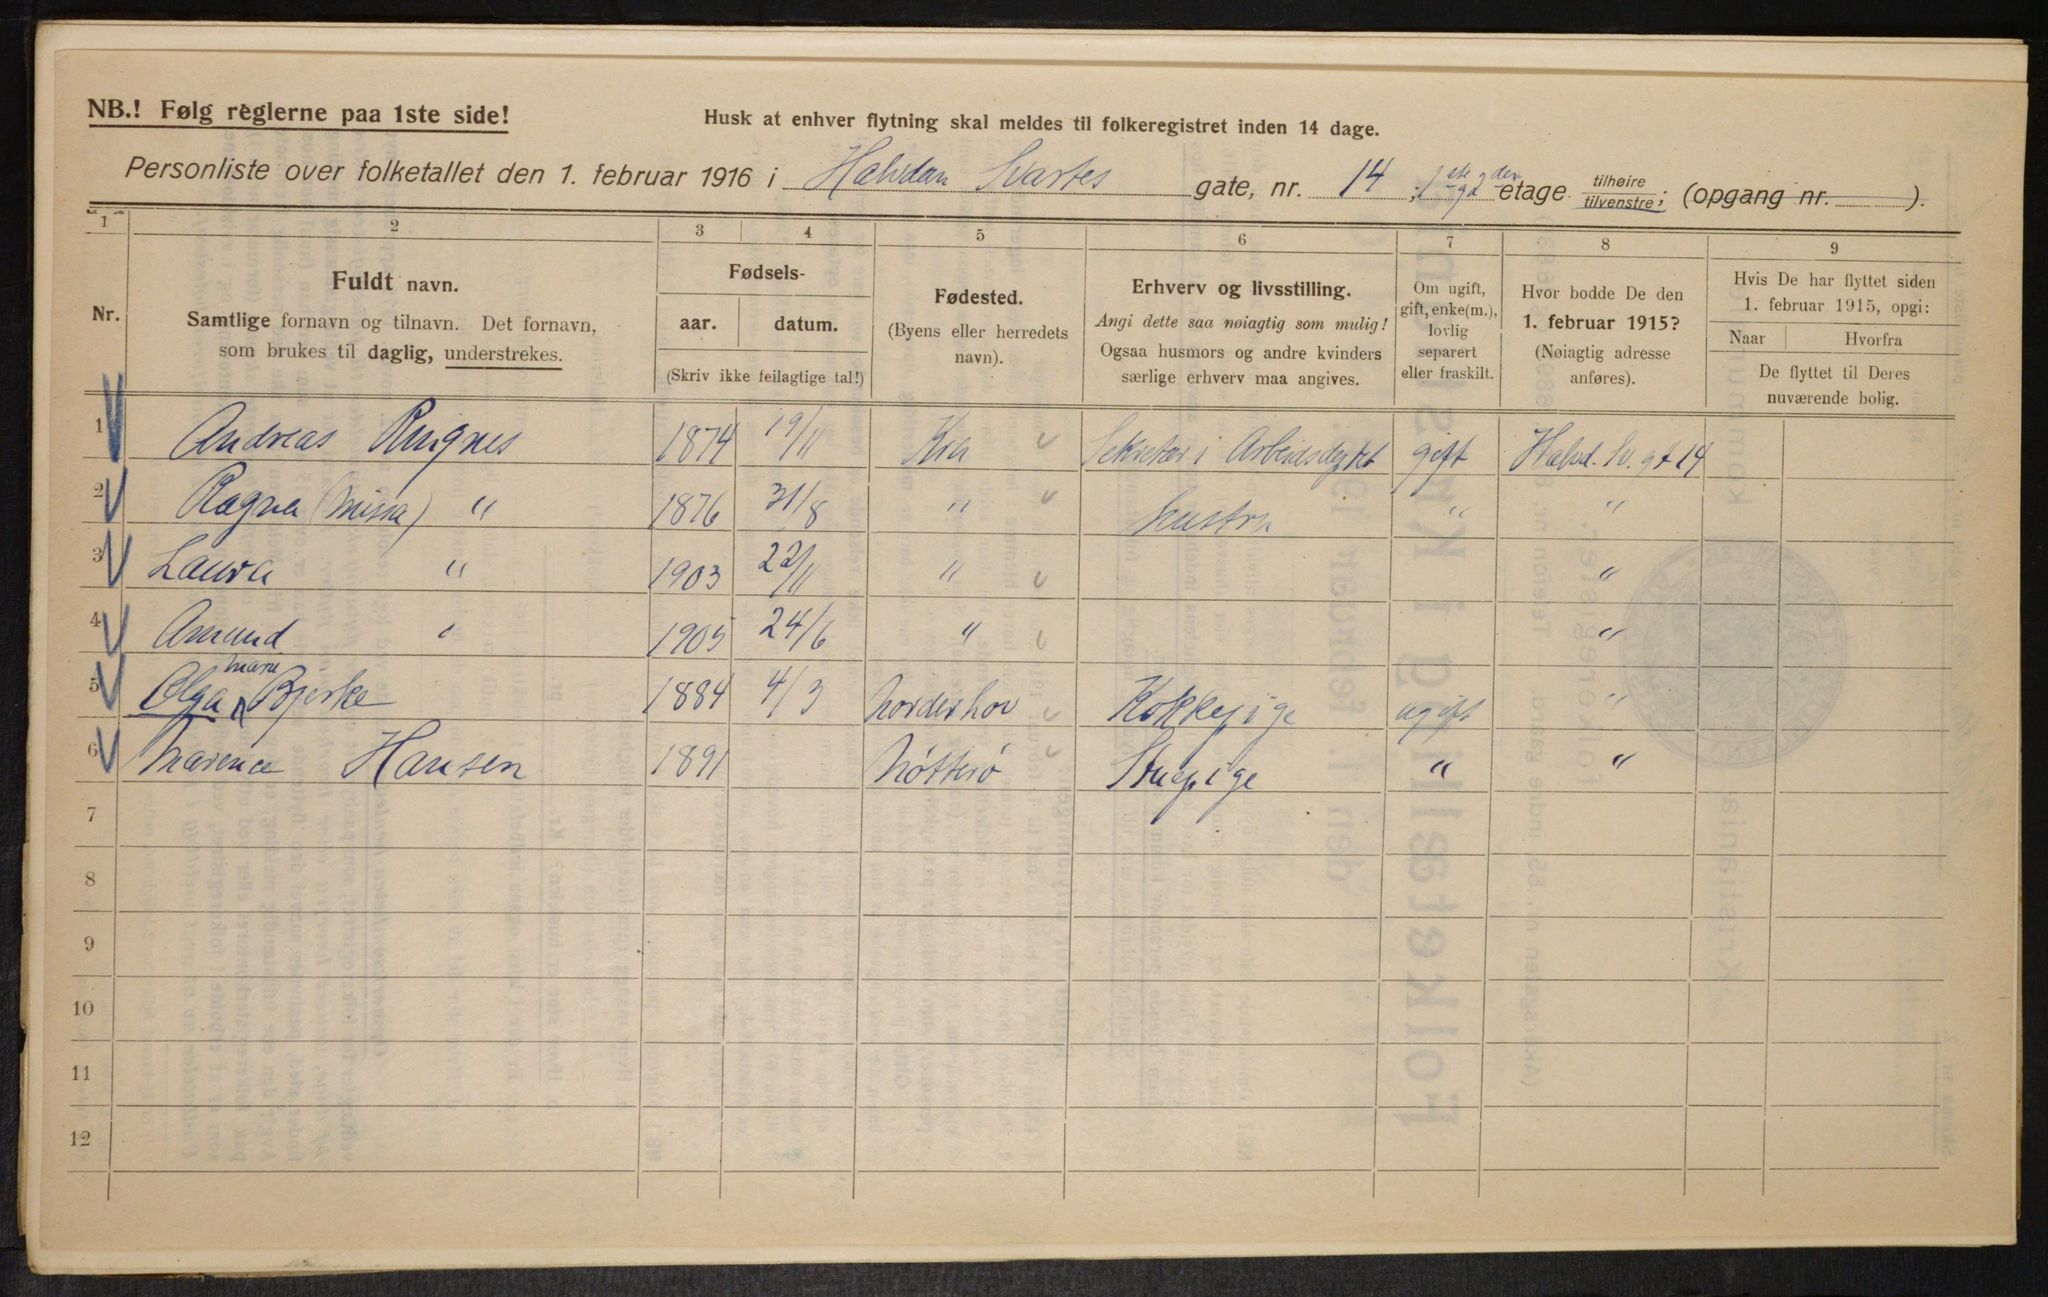 NB.! Følg reglerne paa 1ste side!
Husk at enhver flytning skal meldes til folkeregistret inden 14 dage.
Personliste over folketallet den 1. februar 1916 i Halvdan Svartes gate, nr. 14, 1ste og 2den etage tilhøire tilvenstre; (opgang nr. ).
1 2 3 4 5 6 7 8 9
Nr.
Fuldt navn.
Samtlige fornavn og tilnavn. Det fornavn,
som brukes til daglig, understrekes.
Fødsels-
aar. datum.
(Skriv ikke feilagtige tal!)
Fødested.
(Byens eller herredets
navn).
Erhverv og livsstilling.
Angi dette saa nøiagtig som mulig!
Ogsaa husmors og andre kvinders
særlige erhverv maa angives.
Om ugift,
gift, enke(m.),
lovlig
separert
eller fraskilt.
Hvor bodde De den
1. februar 1915?
(Nøiagtig adresse
anføres).
Hvis De har flyttet siden
1. februar 1915, opgi:
Naar Hvorfra
De flyttet til Deres
nuværende bolig.
1 Andreas Ringnes 1874 19/11 Kra Sekretær i gift Halvd. Sv. gt 14
2 Ragna (Missa) " 1876 31/8 " hustru " "
3 Laura " 1903 22/11 " "
4 Amund " 1905 24/6 " "
5 Olga Marie Bjerke 1884 4/3 Norderhov Kokkepige ugift "
6 Marena Hansen 1891 Nøtterø Stuepige " "
7
8
9
10
11
12